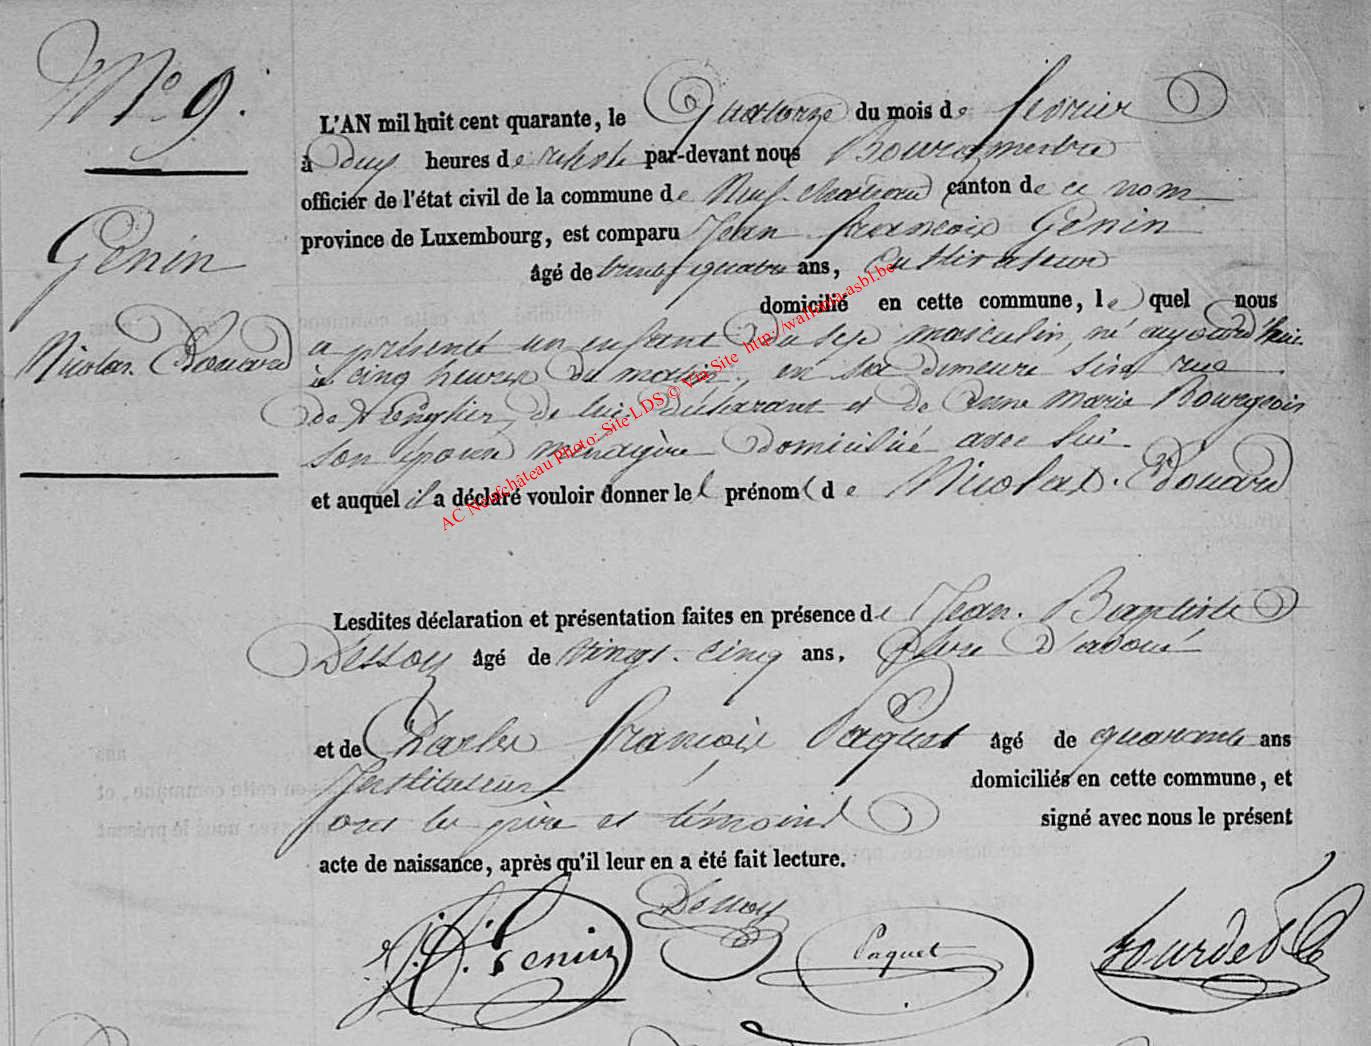 N.° 9.
Genin
Nicolas Edouard
L'AN mil huit cent quarante, le Quatorze du mois de fevrier
à heures de relevée par-devant nous Bourgmestre
officier de l'état civil de la commune de Neuf-chateau canton de ce nom
province de Luxembourg, est comparu Jean françois Genin
âgé de trente quatre ans, Cultivateur
domicilié en cette commune, le quel nous
a présenté un enfant du sexe masculin, né aujourd'hui
à cinq heures du matin, en sa demeure sise rue
de lui déclarant et de Anne Marie Bourgeois
son épouse ménagère domiciliée avec lui
et auquel il a déclaré vouloir donner le prénom de Nicolas. Edouard
Lesdites déclaration et présentation faites en présence de Jean. Baptiste
Dessoy âgé de vingt-cinq ans, d'avoué
et de Charles françois Paquet âgé de quarante ans
Instituteur domiciliés en cette commune, et
ont les père et témoins signé avec nous le présent
acte de naissance, après qu'il leur en a été fait lecture.
J. f. Genin Dessoy Paquet
AC Neufchâteau Photo: Site LDS © Via Site http://wallonia-asbl.be